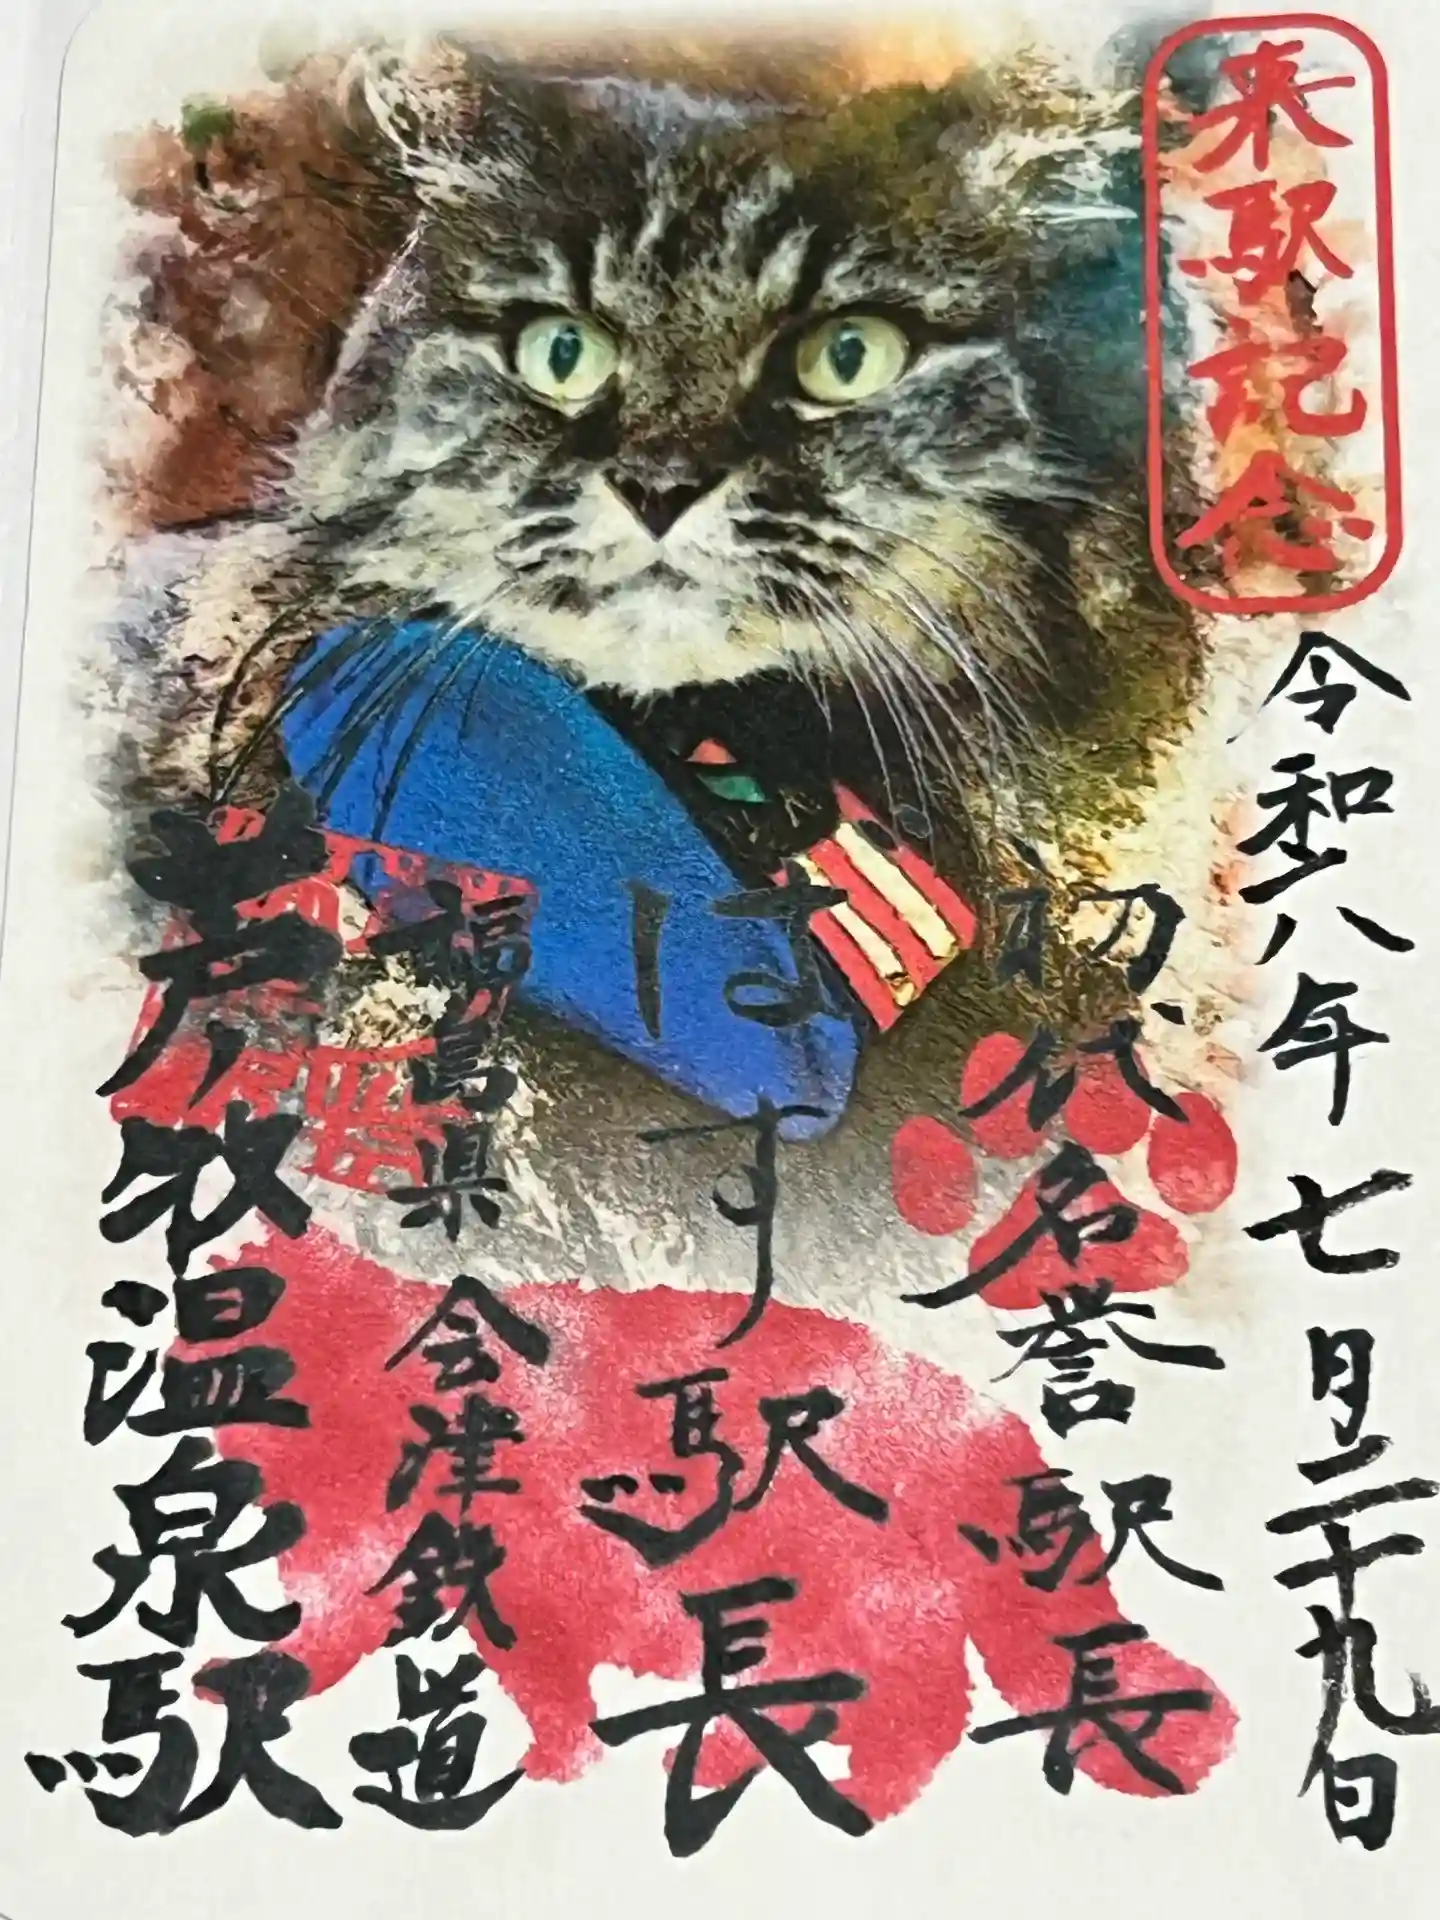 来駅記念
令和八年七月二十九日
初代名誉駅長
ばす駅長
福島県会津鉄道
芦ノ牧温泉駅